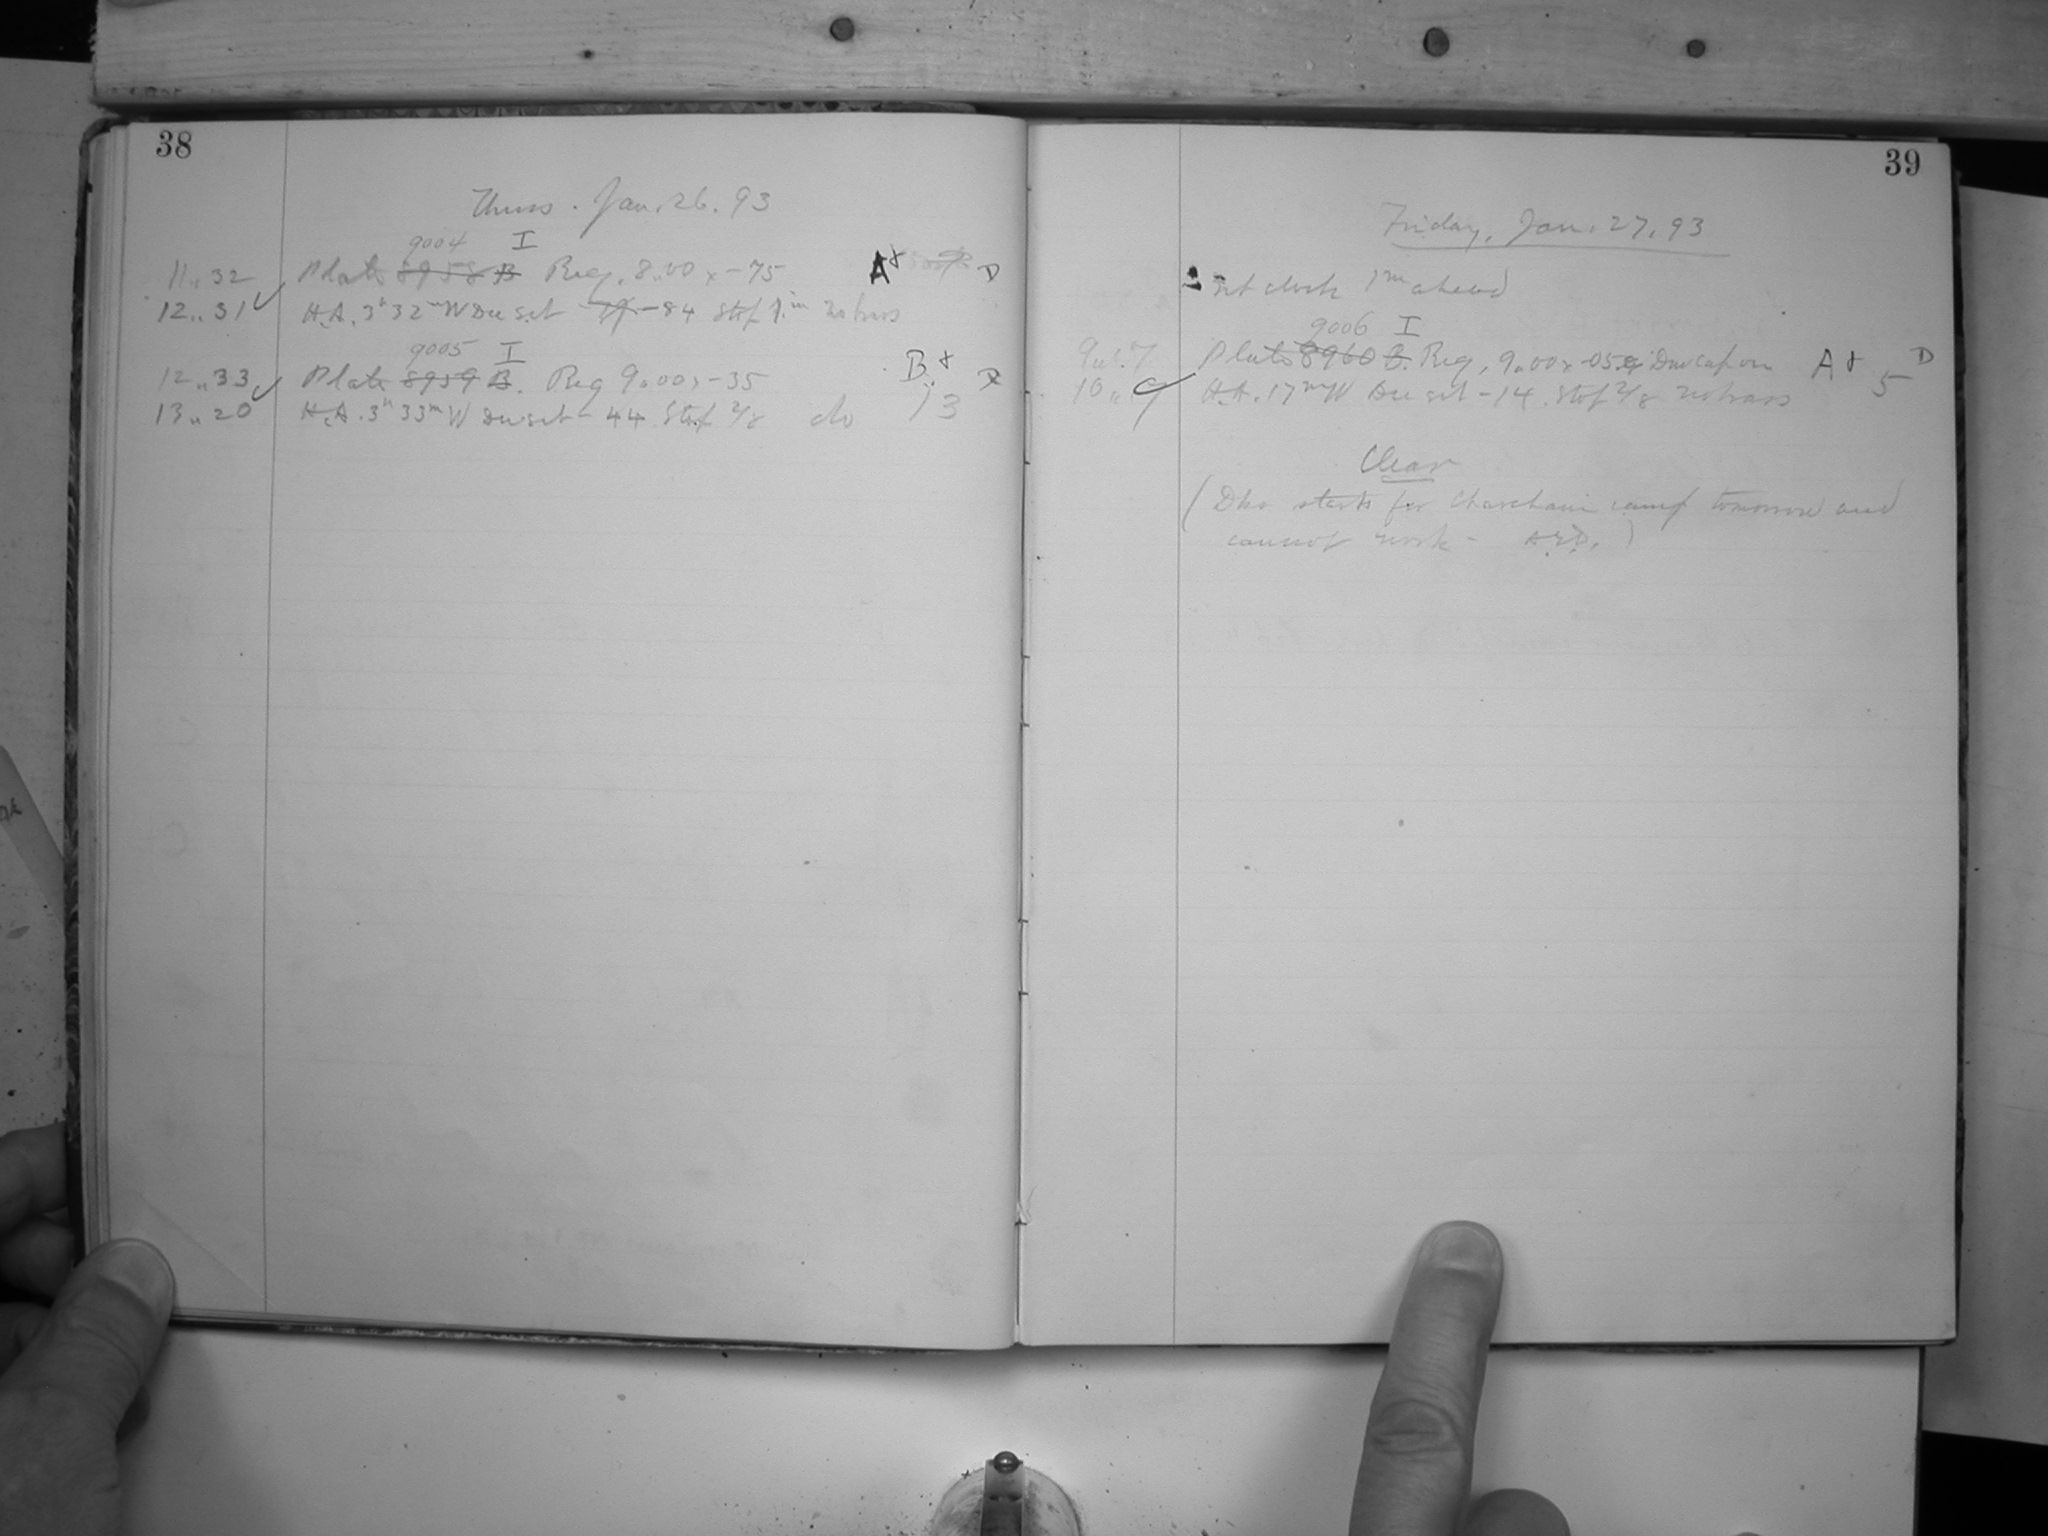 38
Thurs. Jan. 26. 93
9004 I
11,, 32 Plate 8958 B Reg. 8,,00 x -75 A8 D
12,, 31 ✓ H.A. 3h 32m W Dec set -84 Stop 1m no trans
9005 I
12,, 33 Plate 8959 B. Reg 9,,00 x -35 B.8 D
13,, 20 ✓ H.A. 3h 33m W Dec set -44 Stop 2/8 do 3
39
Friday, Jan. 27. 93
Set clock 1m ahead
9006 I
9,, 7 Plate 8960 B. Reg. 9,,00 x -05 Dewcap on A8 D
10,, 9 ✓ H.A. 17m W Dec set -14 Stop 2/8 no trans 5
Clear
( starts for camp tomorrow and
cannot work - A.E.D. )